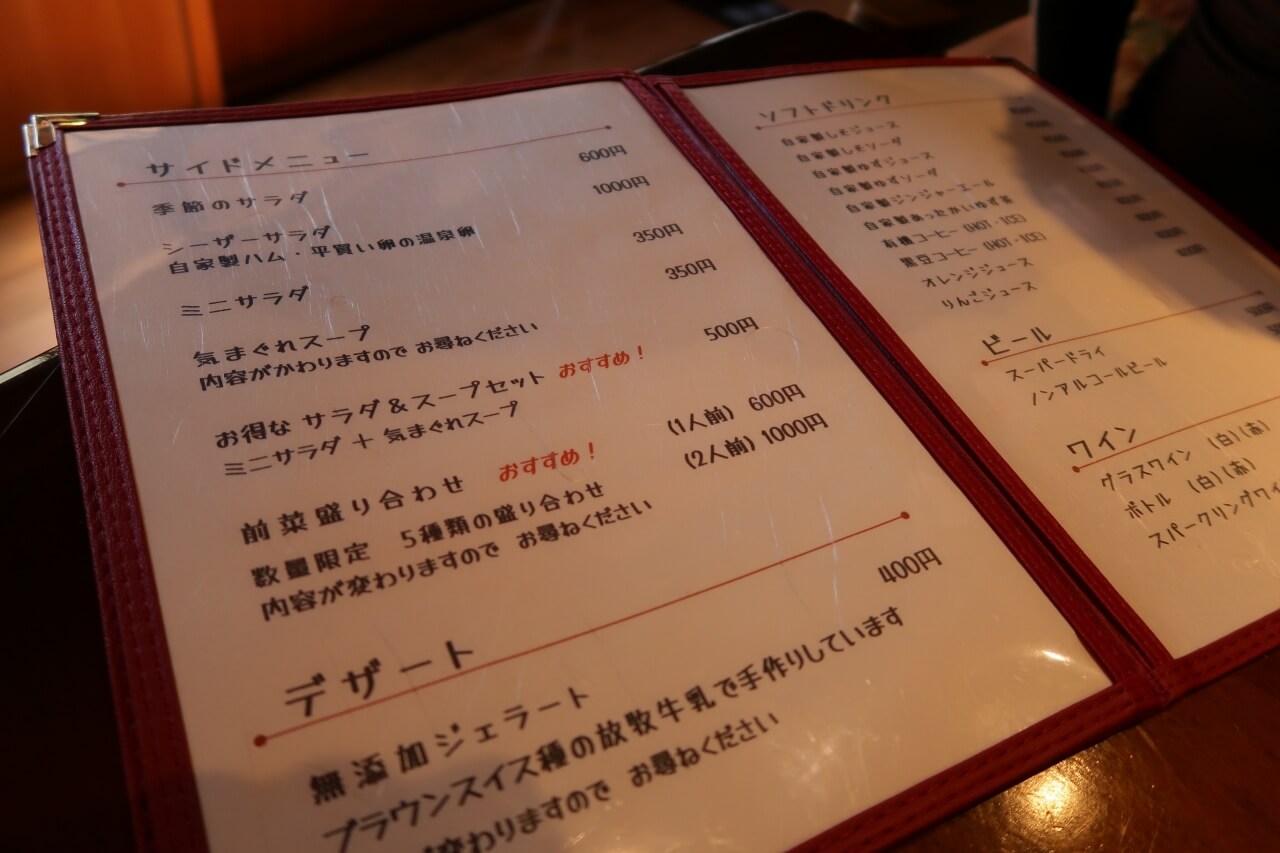 サイドメニュー
季節のサラダ 600円
シーザーサラダ 1000円
自家製ハム・平買い卵の温泉卵
ミニサラダ 350円
気まぐれスープ 350円
内容がかわりますので お尋ねください
お得な サラダ&スープセット おすすめ! 500円
ミニサラダ + 気まぐれスープ
前菜盛り合わせ おすすめ! (1人前) 600円
数量限定 5種類の盛り合わせ (2人前) 1000円
内容が変わりますので お尋ねください
デザート
無添加ジェラート 400円
ブラウンスイス種の放牧牛乳で手作りしています
変わりますので お尋ねください
ソフトドリンク
自家製しそジュース
自家製しそソーダ
自家製ゆずジュース
自家製ゆずソーダ
自家製ジンジャーエール
自家製あったかいゆず茶
有機コーヒー (HOT・ICE)
黒豆コーヒー (HOT・ICE)
オレンジジュース
りんごジュース
ビール
スーパードライ
ノンアルコールビール
ワイン
グラスワイン (白)(赤)
ボトル (白)(赤)
スパークリングワイ